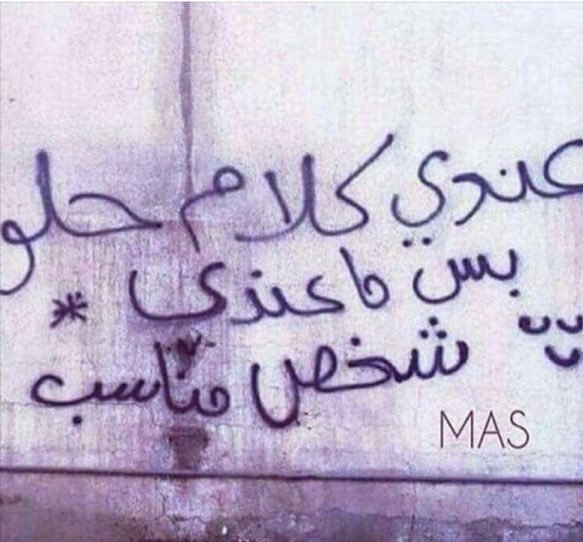 عندي كلام حلو
بس ما عندي *
شخص مناسب
MAS